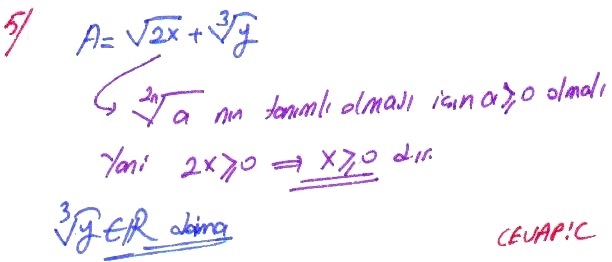 5/ A = √2x + ³√y
²ⁿ√a nın tanımlı olması için a ≥ 0 olmalı
Yani 2x ≥ 0 ⇒ x ≥ 0 dır.
³√y ∈ ℝ daima
CEVAP: C